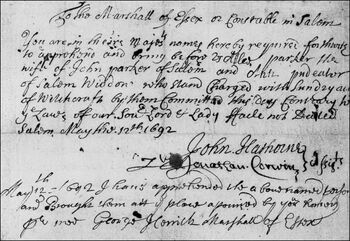 To the Marshall of Essex or Constable in Salem
You are in theire Majests names hereby required forthwith
to apprehend and bring before us Alice parker the
wife of John parker of Salem and Ann pudeator
of Salem Widdow who stand Charged with sundry acts
of Witchcraft by them Committed this day Contrary to
ye Laws of our Sov Lord & Lady faile not Dated
Salem May the 12th 1692
John Hathorne
Jonathan Corwin
May 12th 1692 I have apprehended the above named persons
and Brought them att ye place apointed by your honors
pr mee George Herrick Marshall of Essex